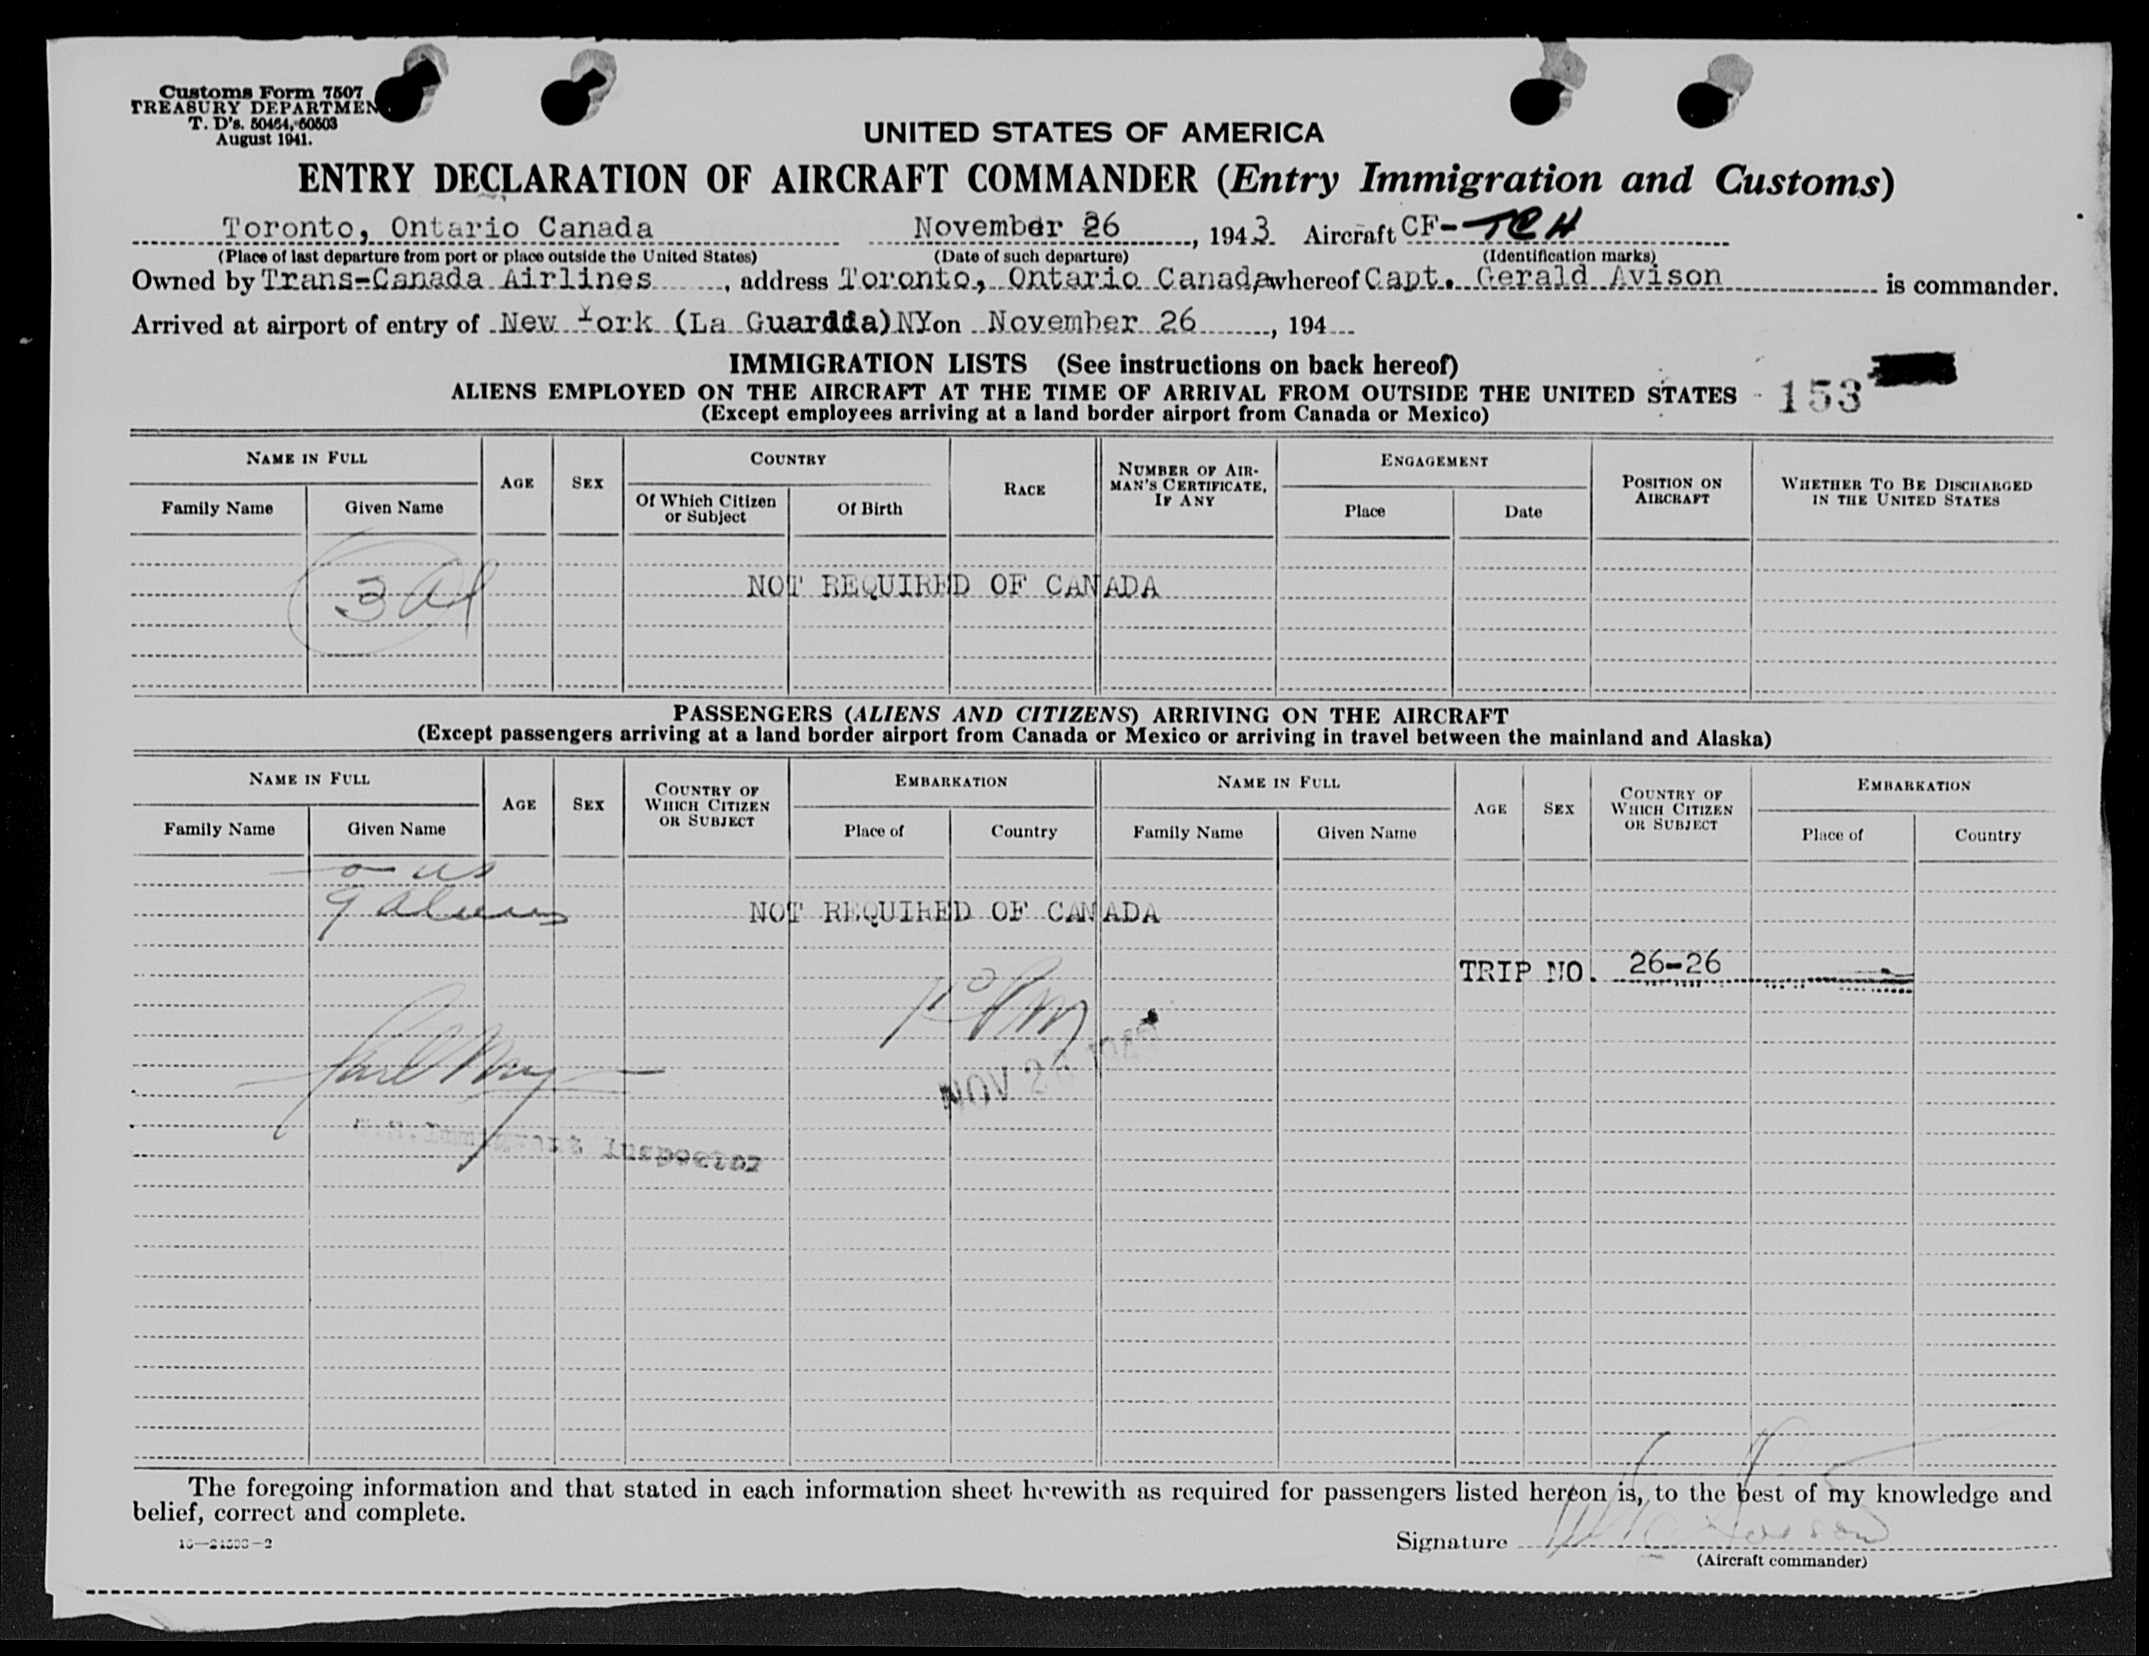 Customs Form 7507
TREASURY DEPARTMEN
T. D's. 50464, 50503
August 1941.
UNITED STATES OF AMERICA
ENTRY DECLARATION OF AIRCRAFT COMMANDER (Entry Immigration and Customs)
Toronto, Ontario Canada November 26, 1943. Aircraft CF-TCH
(Place of last departure from port or place outside the United States) (Date of such departure) (Identification marks)
Owned by Trans-Canada Airlines, address Toronto, Ontario Canada, whereof Capt. Gerald Avison is commander.
Arrived at airport of entry of New York (La Guardia) NY on November 26, 194
IMMIGRATION LISTS (See instructions on back hereof)
ALIENS EMPLOYED ON THE AIRCRAFT AT THE TIME OF ARRIVAL FROM OUTSIDE THE UNITED STATES 153
(Except employees arriving at a land border airport from Canada or Mexico)
NAME IN FULL AGE SEX COUNTRY RACE NUMBER OF AIRMAN'S CERTIFICATE, IF ANY ENGAGEMENT POSITION ON AIRCRAFT WHETHER TO BE DISCHARGED IN THE UNITED STATES
Family Name Given Name Of Which Citizen or Subject Of Birth Place Date
3 al
NOT REQUIRED OF CANADA
PASSENGERS (ALIENS AND CITIZENS) ARRIVING ON THE AIRCRAFT
(Except passengers arriving at a land border airport from Canada or Mexico or arriving in travel between the mainland and Alaska)
NAME IN FULL AGE SEX COUNTRY OF WHICH CITIZEN OR SUBJECT EMBARKATION NAME IN FULL AGE SEX COUNTRY OF WHICH CITIZEN OR SUBJECT EMBARKATION
Family Name Given Name Place of Country Family Name Given Name Place of Country
o us
9 aliens
NOT REQUIRED OF CANADA
TRIP NO. 26-26
NOV 26 1943
Immigrant Inspector
The foregoing information and that stated in each information sheet herewith as required for passengers listed hereon is, to the best of my knowledge and
belief, correct and complete.
Signature
(Aircraft commander)